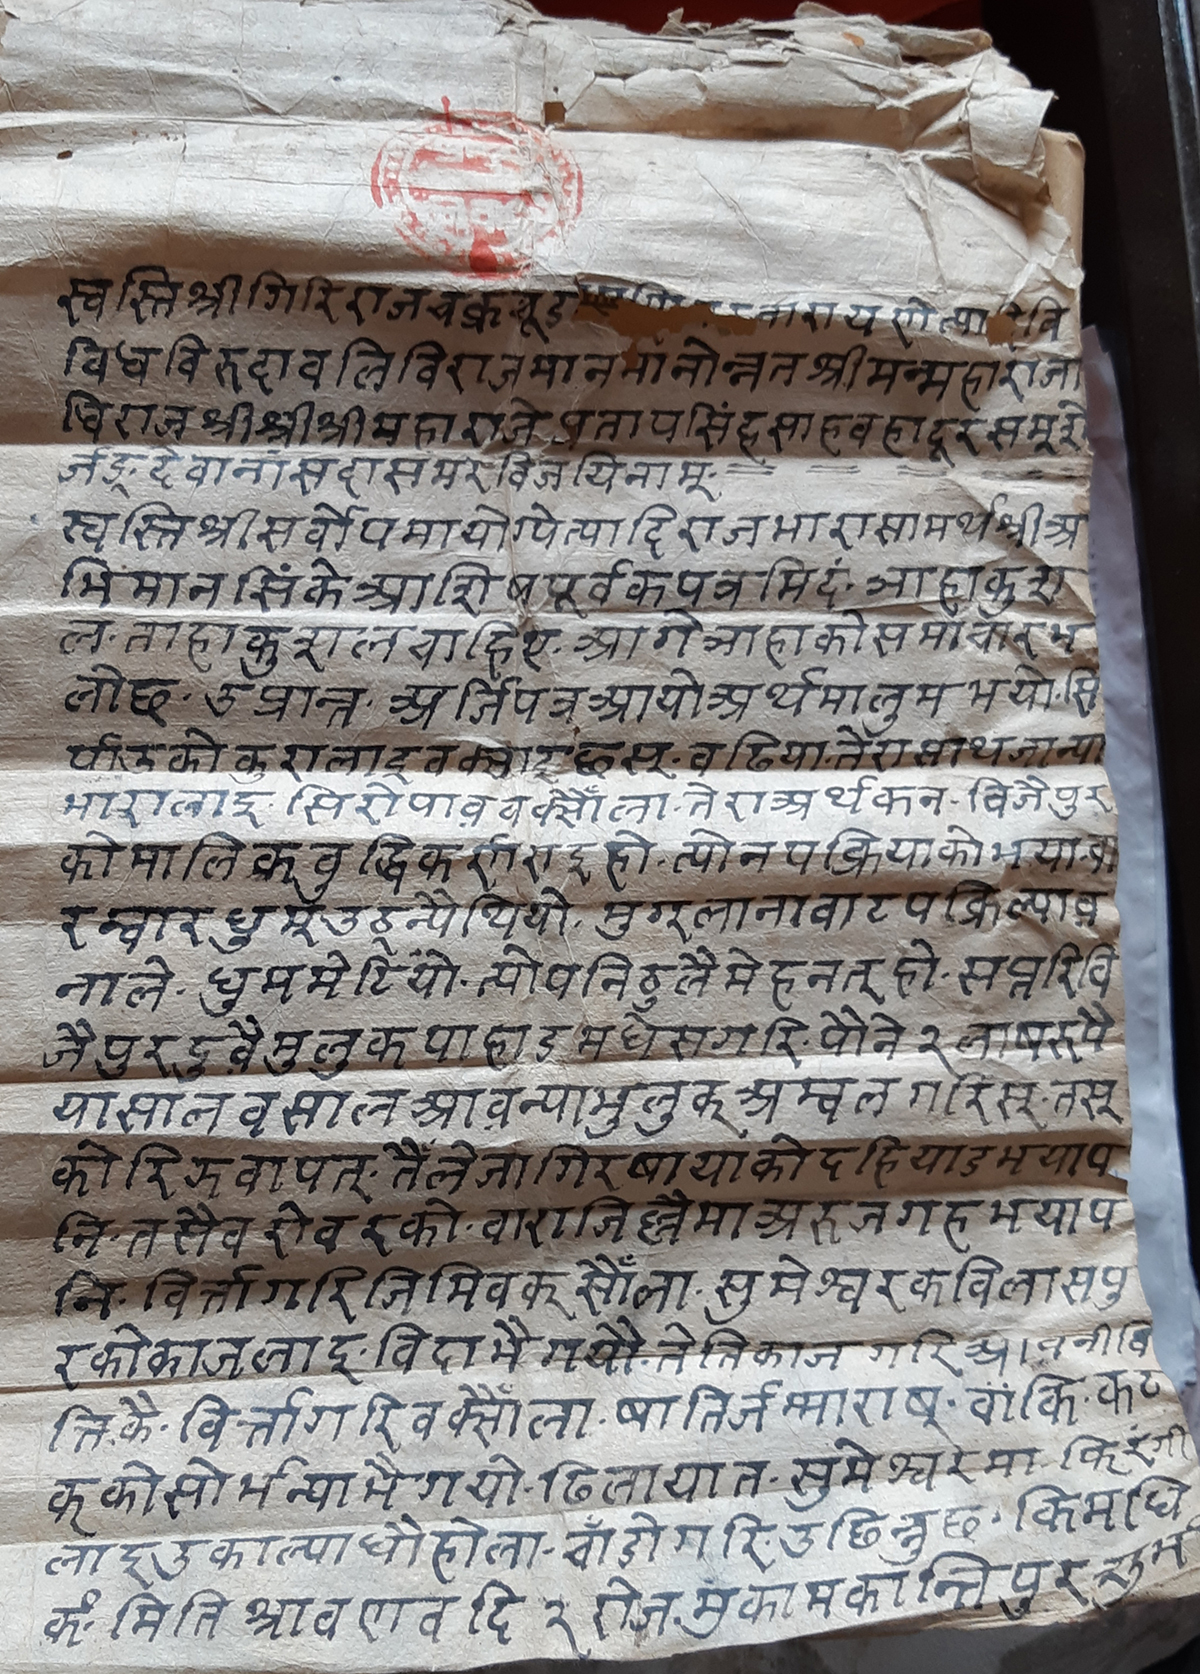 स्वस्ति श्रीगिरिराजचक्रचूडा नारायणेत्यादिवि
विधविरुदावलिविराजमानमानोन्नत श्रीमन्महाराजा
धिराज श्री श्री श्री महाराजे प्रतापसिंहसाहवहादूरसमूशे
र्जङ् देवानां सदा समरविजयिनाम्.
स्वस्तिश्रीसर्वोपमायोग्येत्यादिराजभारासामर्थश्रीअ
भिमानसिंके आशिषपूर्वकपत्रमिदं. ञाहाकुश
ल. ताहाकुशलचाहिए. आगेञाहाकोसमाचारभ
लोछ. उप्रान्त. अर्जिपत्रआयो अर्थमालुमभयो. सि
र्पाउकोकुरालाइवक्साइछस्. वढिया. तेरासाथजान्या
भारालाइ. सिरोपाव़वक्सौंला. तेराअर्थकन. विजैपुर
कोमालिक्वुद्धिकर्णराइहो. त्योनपक्रियाकोभया. वा
रम्वारधुम्उठ्न्यैथियो. मुग्लानावाटपक्रिल्याव़
नाले. धुममेटियो. त्योपनिठुलैमेहनत्हो. सप्तरिवि
जैपुरदुव़ैमुलुकपाहाडमधेसगरि. पौने२लाषरूपै
यासालवसालआव़न्यामुलुक्अम्वलगरिस्. तस्
कोरिझवापत्. तैँलेजागिरषायाकोदहियाडभयाप
नि. तसैवरोवरको. वाराजिह्लैमाअरुजगहभयाप
नि. विर्त्तागरिजिमिवक्सौँला. सुमेश्वरकविलासपु
रकोकाजलाइ. विदाभैगयौ. तेतिकाजगरिआवनीवि
त्तिकै. विर्त्तागरिवक्सौँला. षातिर्जम्माराष्. वांकि. काठ
क्कोसोर्भन्याभैगयो. ढिलायात. सुमेश्वरमा. फिरंगी
लाइउकाल्याघौहोला. चाँडोगरि. उछिन्नुछ. किमधि
कं. मितिश्रावणवदि२रोज. मुकामकान्तिपुरशुभं